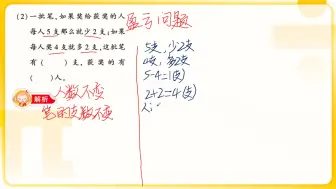 (2)一批笔,如果奖给获奖的人
每人5支那么就少2支;如果
每人奖4支就多2支,这批笔
有( )支,获奖的有
( )人。
盈亏问题
解析
人数不变
笔的支数不变
5支,少2支
4支,多2支
5-4=1(支)
2+2=4(支)
人: